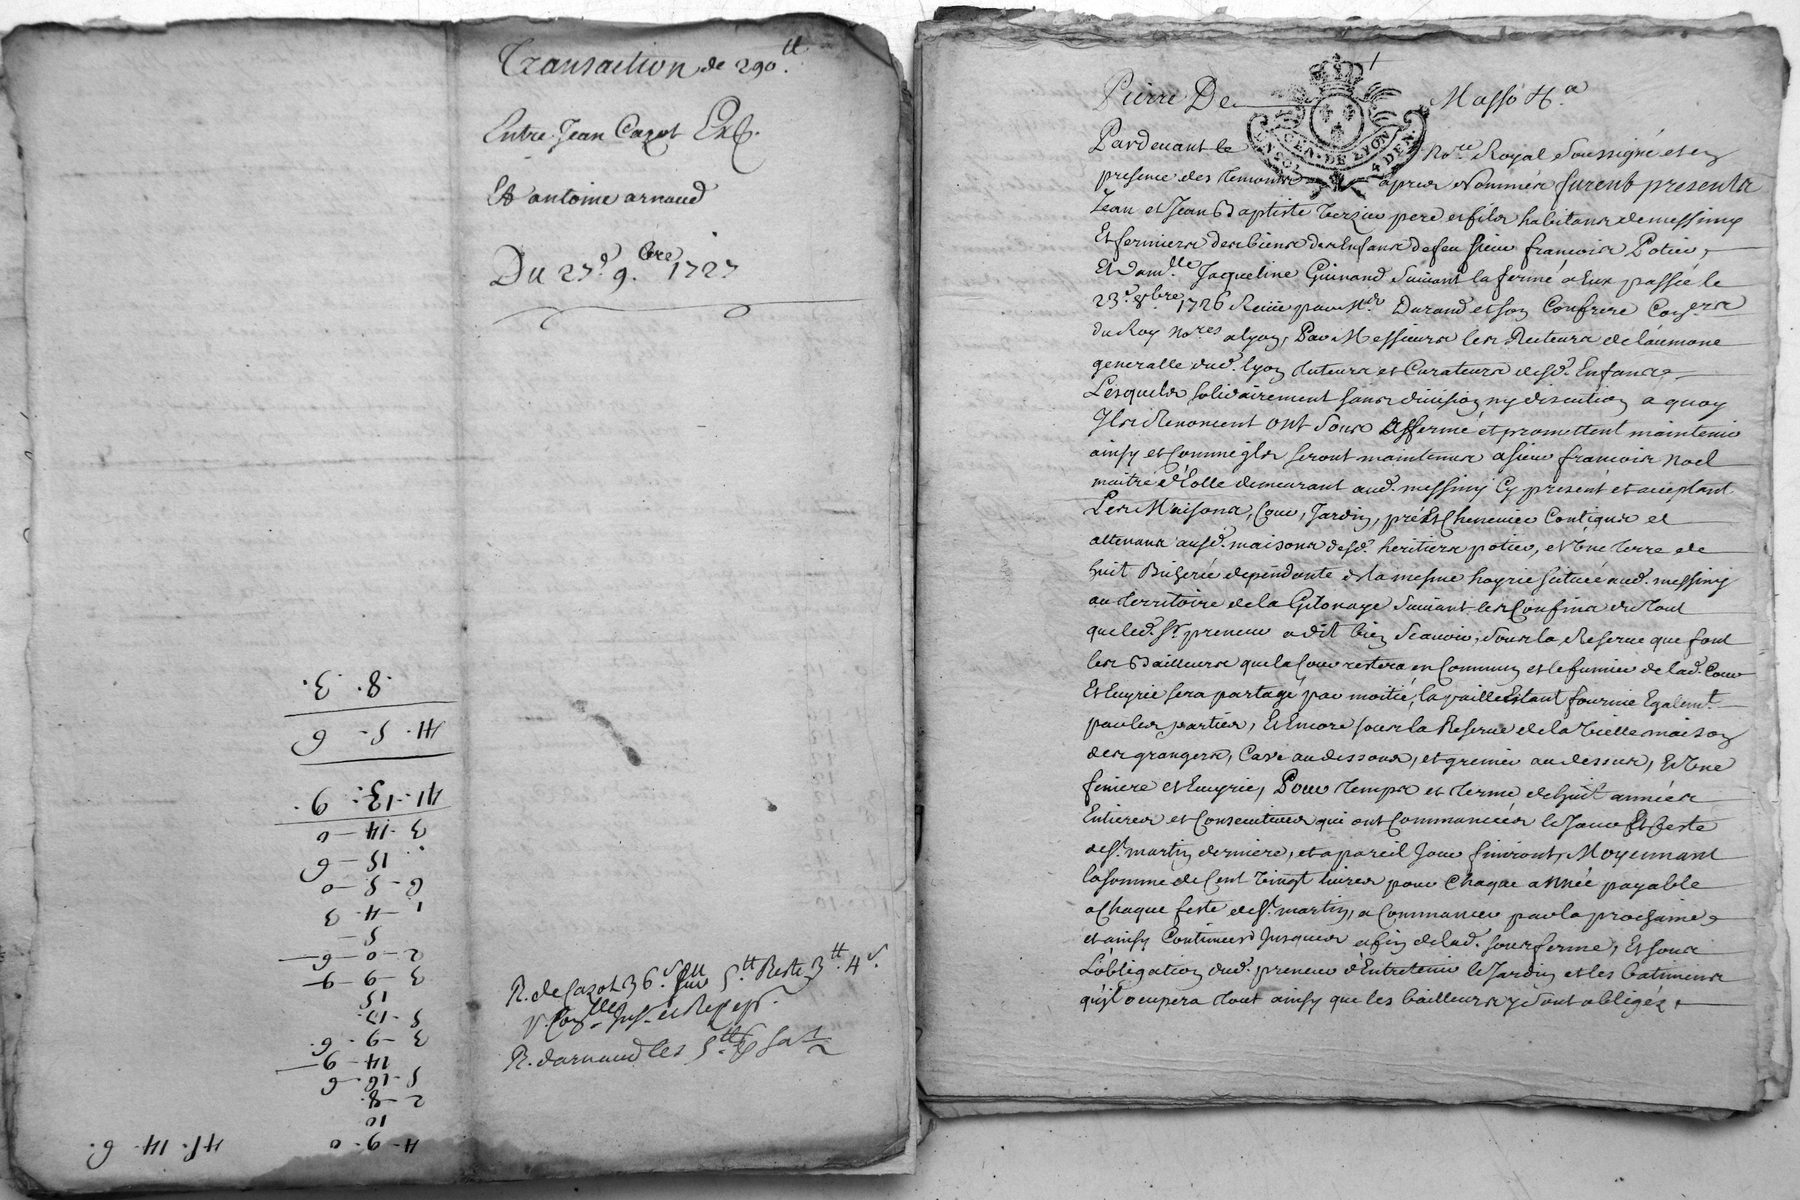 Transaction de 290.tt
Entre Jean Cazot
Et antoine arnaud
Du 27.e 9.bre 1727
R. de Cazot 36.s sur 5.tt Reste 3.tt 4.s
R. darnaud les 5.tt
8. 3.
41. 5- 6
41. 13. 9.
3. 14 - 0
15 - 6
6 - 5 - 0
1 - 4. 3
5 -
2 - 0 - 6
3 - 9 - 9
15
5 - 12.
3 - 9 - 6.
14 - 9
5 - 16 - 6
2 - 8.
10
4 - 9 - 0
45. 14. 6.
Pierre De Masso
GEN. DE LYON
4 DEN.
Pardevant le no.re Royal Soussigné et en
presence des temoins apres Nommés furent presents
Jean et Jean Baptiste Verzieu pere et fils habitans de messimy
Et fermiers des biens des Enfans de feu sieur francois Potier,
Et dam.lle Jacqueline Guinand Suivant la ferme a Eux passée le
23.e 8.bre 1726 Receüe par M.e Durand et son Confrere Con.ers
du Roy no.res a lyon, Par Messieurs les Recteurs de l'aumone
generalle dud. lyon tuteurs et Curateurs desd. Enfans,
Lesquels solidairement sans division ny discution a quoy
Ils Renoncent ont Sous Affermé et promettent maintenir
ainsy et Comme ils seront maintenus a sieur francois noel
maitre d'Ecolle demeurant aud. messimy Cy present et acceptant
Les Maisons, Cour, Jardin, pré Et Chenevier Contigus et
attenans ausd. maisons desd. heritiers potier, et Une terre de
huit Bicherée dependante de la mesme hoyrie scituée aud. messimy
au territoire de la Suivant les Confins du tout
que led. s.r preneur a dit bien Scavoir, sous la Reserve que font
les Bailleurs que la Cour restera en Commun et le fumier de lad. Cour
Et Ecuyrie sera partagé par moitié, la paille Estant fournie Egalem.t
par les parties, Et Encore sous la Reserve de la Vieille maison
des grangers, Cave au dessous, et grenier au dessus, Et Une
feniere et Ecuyrie, Pour temps et terme de huit années
Entieres et Consecutives qui ont Commancées le Jour Et feste
de S.t martin derniere, et a pareil Jour finiront, Moyennant
la somme de Cent Vingt livres pour Chaque année payable
a Chaque feste de S.t martin, a Commancer par la prochaine,
et ainsy Continuer Jusques a fin de lad. sousferme, Et sous
L'obligation dud. preneur d'Entretenir le Jardin et les batimens
qu'il ocupera tout ainsy que les bailleurs y sont obligéz,